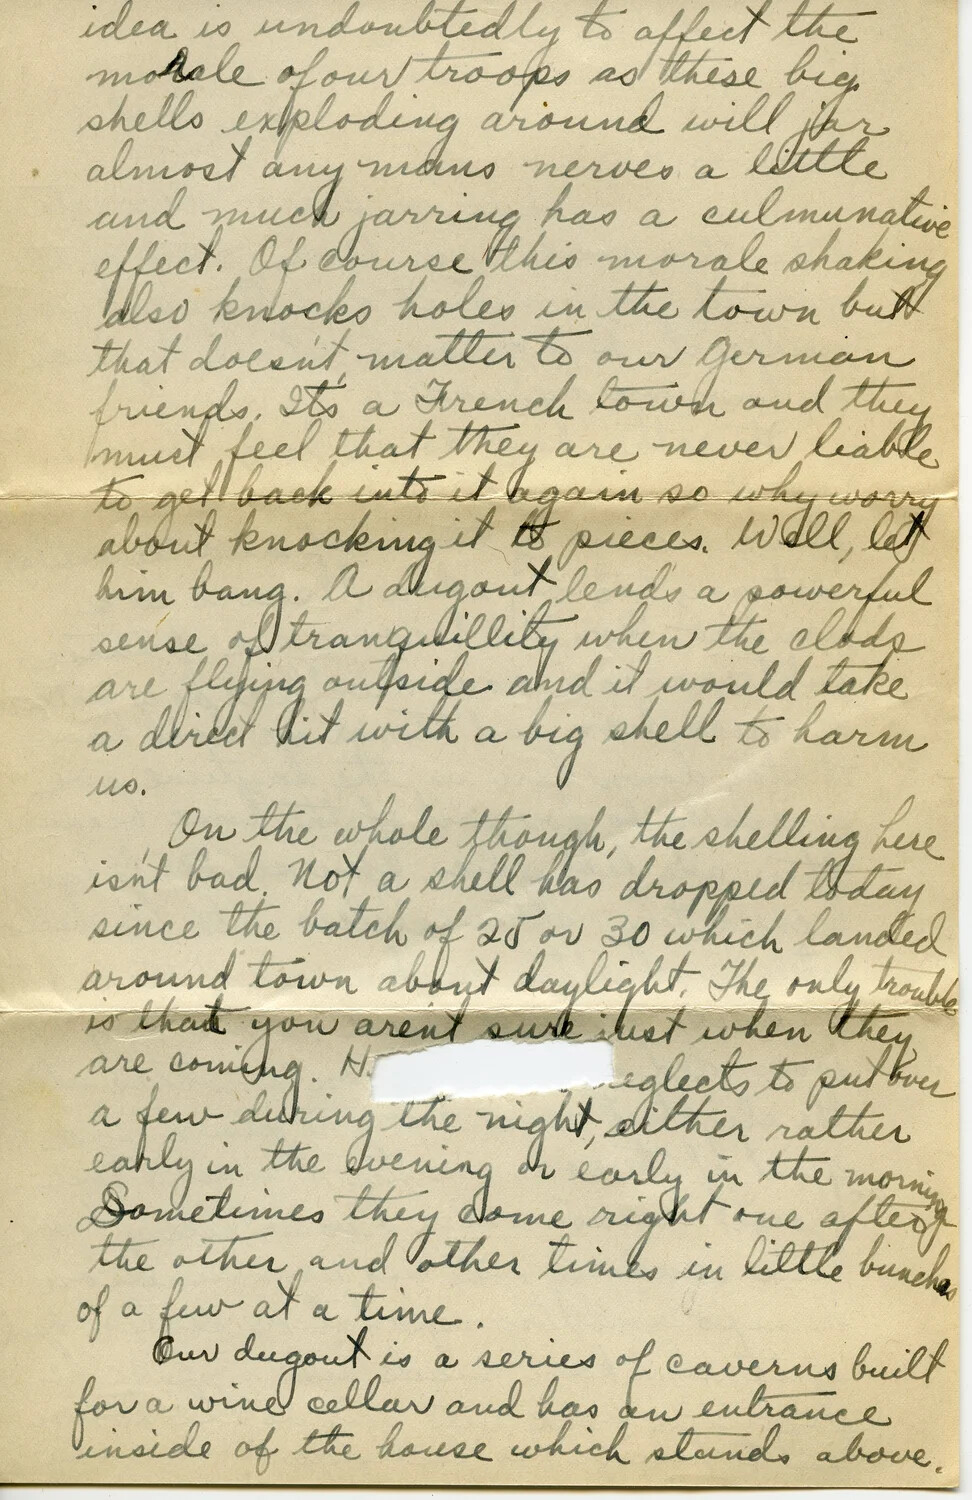 idea is undoubtedly to affect the
morale of our troops as these big
shells exploding around will jar
almost any mans nerves a little
and much jarring has a culmunative
effect. Of course this morale shaking
also knocks holes in the town but
that doesn't matter to our German
friends. Its a French town and they
must feel that they are never liable
to get back into it again so why worry
about knocking it to pieces. Well, let
him bang. A dugout lends a powerful
sense of tranquillity when the clods
are flying outside and it would take
a direct hit with a big shell to harm
us.
On the whole though, the shelling here
isn't bad. Not a shell has dropped today
since the batch of 25 or 30 which landed
around town about daylight. The only trouble
is that you aren't sure just when they
are coming. H. neglects to put over
a few during the night, either rather
early in the evening or early in the morning
Sometimes they come right one after
the other and other times in little bunches
of a few at a time.
Our dugout is a series of caverns built
for a wine cellar and has an entrance
inside of the house which stands above.